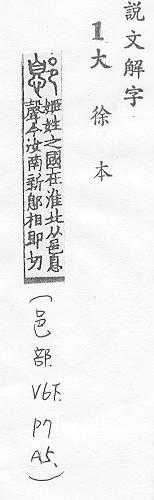 説文解字
1大徐本
鄎
姬姓之國在淮北从邑息
聲今汝南新鄎相即切
(邑部V6下.P7A5.)